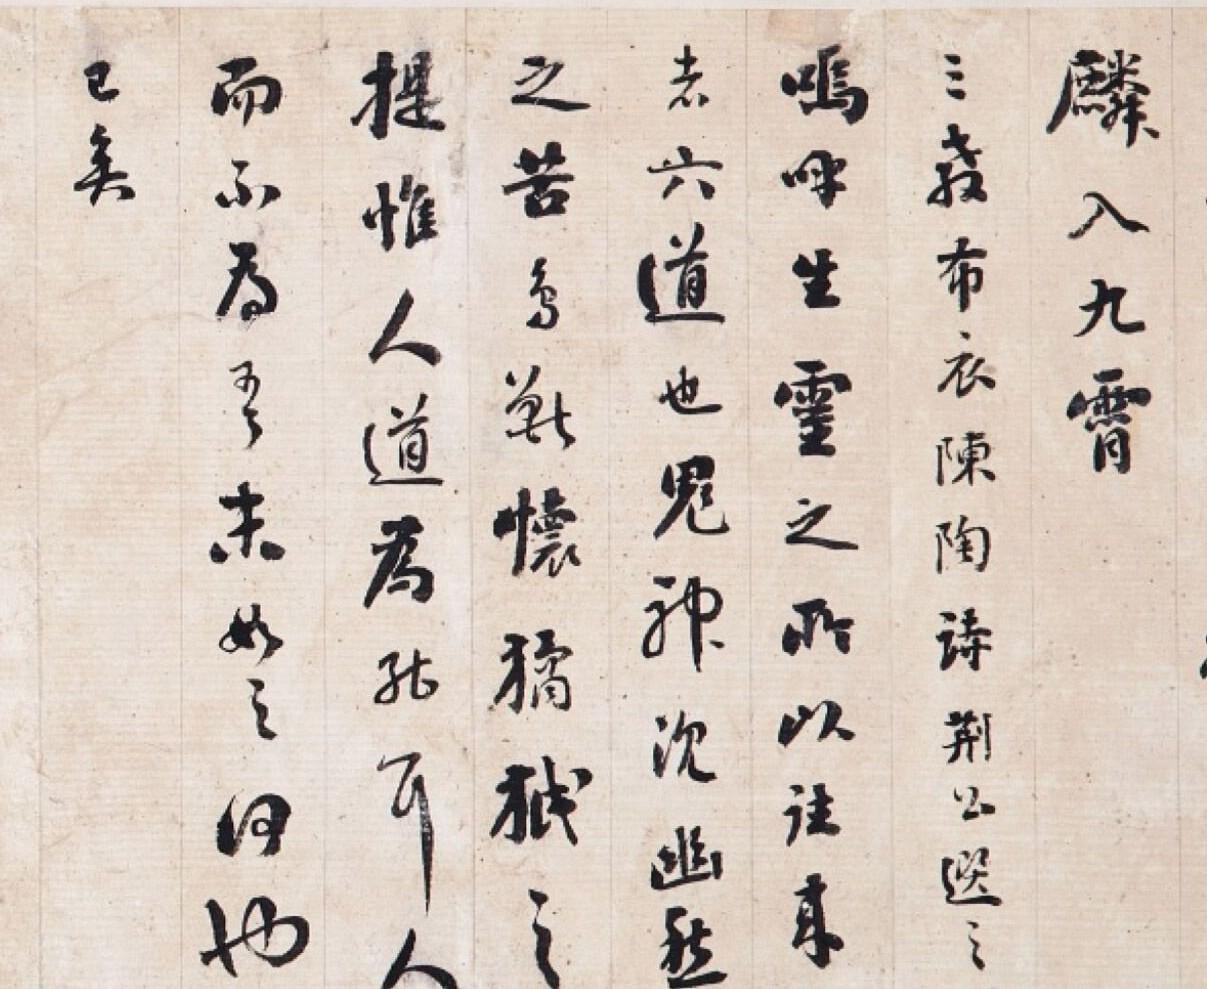 麟入九霄
三教布衣陳陶詩荊公選之
嗚呼生靈之所以往來
者六道也鬼神沈幽愁
之苦鳥獸懷獝狘之
提惟人道為能耳人
而不為吾末如之何也
已矣